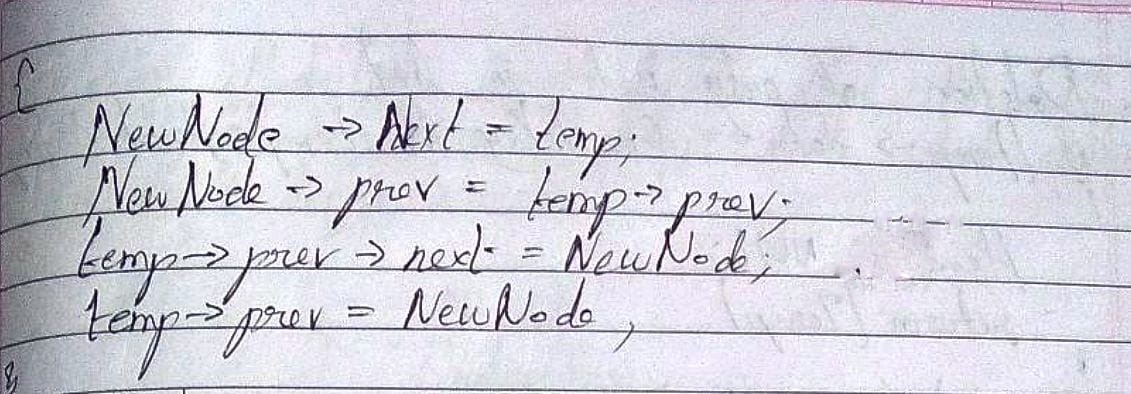 {
NewNode → Next = temp;
NewNode → prev = temp → prev;
temp → prev → next = NewNode;
temp → prev = NewNode,